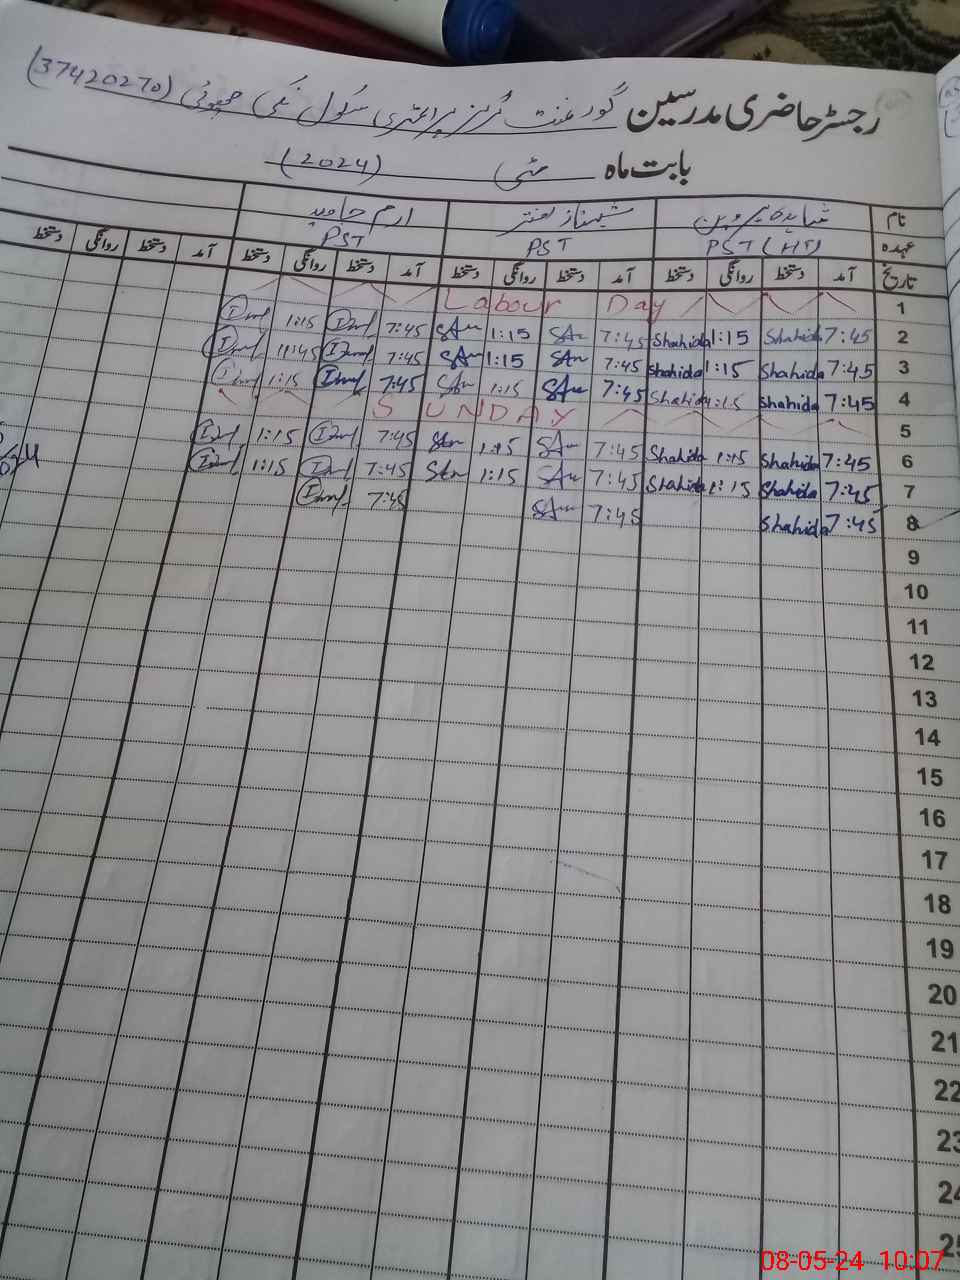 رجسٹر حاضری مدرسین گورنمنٹ گرلز پرائمری سکول نکی چھوئی (37420270)
بابت ماہ مئی (2024)
نام شاہدہ پروین شہناز اختر ارم جاوید
عہدہ PST (HT) PST PST
تاریخ آمد دستخط روانگی دستخط آمد دستخط روانگی دستخط آمد دستخط روانگی دستخط آمد دستخط روانگی دستخط
1 Labour Day
2 7:45 Shahida 1:15 Shahida 7:45 1:15 7:45 1:15
3 7:45 Shahida 1:15 Shahida 7:45 1:15 7:45 11:45
4 7:45 Shahida 1:15 Shahida 7:45 1:15 7:45 1:15
5 SUNDAY
6 7:45 Shahida 1:15 Shahida 7:45 1:15 7:45 1:15
7 7:45 Shahida 1:15 Shahida 7:45 1:15 7:45 1:15
8 7:45 Shahida 7:45 7:45
9
10
11
12
13
14
15
16
17
18
19
20
21
22
23
24
25
08-05-24 10:07